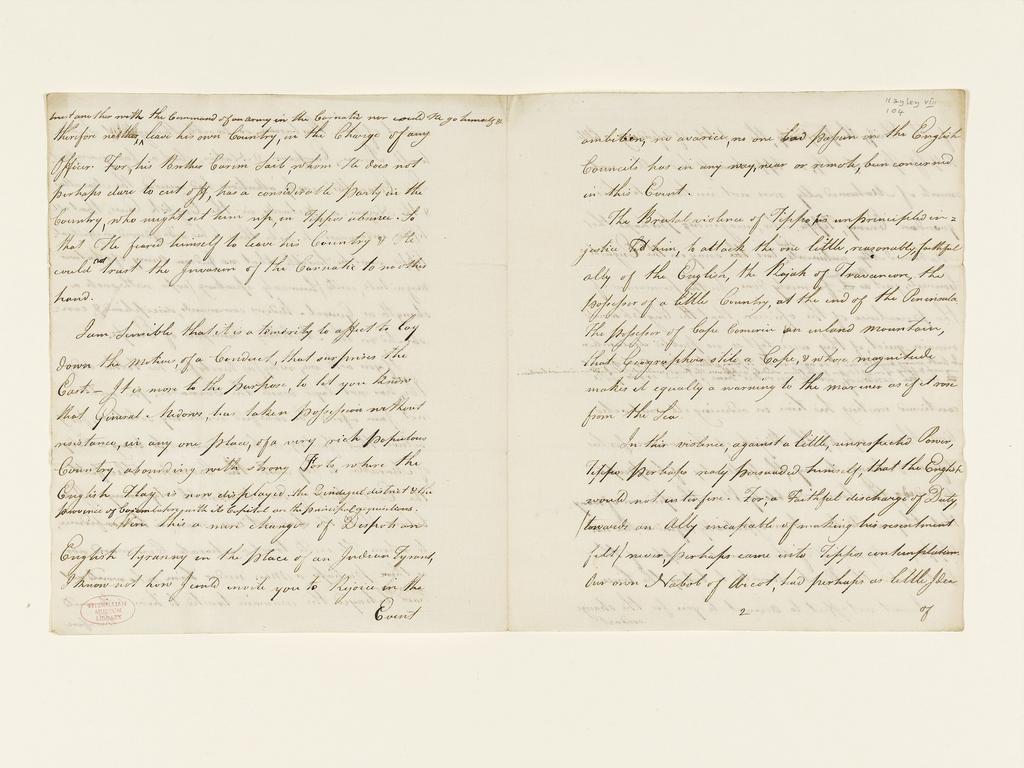 trust another with the Command of an army in the Carnatic nor could He go himself &
therefore neither leave his own Country, in the Charge of any
Officer. For, his Brother Carim Saib, whom He does not
perhaps dare to cut off, has a considerable party in the
Country, who might set him up, in Tippos absence. So
that He feared himself to leave his Country & He
could not trust the Invasion of the Carnatic to another
hand.
I am sensible that it is a temerity to affect to lay
down the motives, of a Conduct, that surprises the
East. – It is more to the purpose, to let you know
that General Medows, has taken possession without
resistance, in any one place, of a very rich populous
Country abounding with strong Forts, where the
English Flag is now displayed. the Dindegul district & the
province of with its Capital are the principal acquisitions.
Were this a mere change of Despotism
English Tyranny in the place of an Indian Tyrant,
I know not how I could invite you to Rejoice in the
Event
FITZWILLIAM
MUSEUM
LIBRARY
Hayley VIII
104
ambition, no avarice, no one bad passion in the English
Councils has in any way, near or remote, been concerned
in this Event.
The Brutal violence of Tippo, his unprincipled in=
justice led him, to attack the one little, reasonably faithful
ally of the English, the Rajah of Travancore, the
possessor of a little Country, at the end of the Peninsula
The possessor of Cape Comorin an inland mountain,
that Geographers stile a Cape, & whose magnitude
makes it equally a warning to the mariner as if it rose
from the Sea.
In this violence, against a little, unrespected Power,
Tippo perhaps really persuaded himself, that the English
would not interfere. For a Faithful discharge of Duty
(towards an Ally incapable of making his resentment
felt) never, perhaps came into Tippos contemplation.
Our own Nabob of Arcot, had perhaps as little Idea
2
of